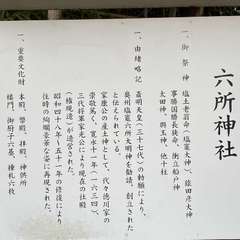 六所神社
一、御祭神　塩土老翁命（塩竈大神）、猿田彦大神
事勝国勝長狭命、衝立船戸神
太田神、興玉神、他十柱
一、由緒略記
斎明天皇（三十七代）の勅願により、
奥州塩竈六所大明神を勧請、創立された
と伝えられている。
家康公の産土神として、代々徳川家の
崇敬篤く、寛永十一年（一六三四）、
三代将軍家光公により現在の社殿
（権現造）が造営された。
昭和四十八年～五十一年の修復により
往時の絢爛豪華な姿に再現された。
一、重要文化財
本殿、幣殿、拝殿、神供所
楼門、御厨子六基、棟札六枚